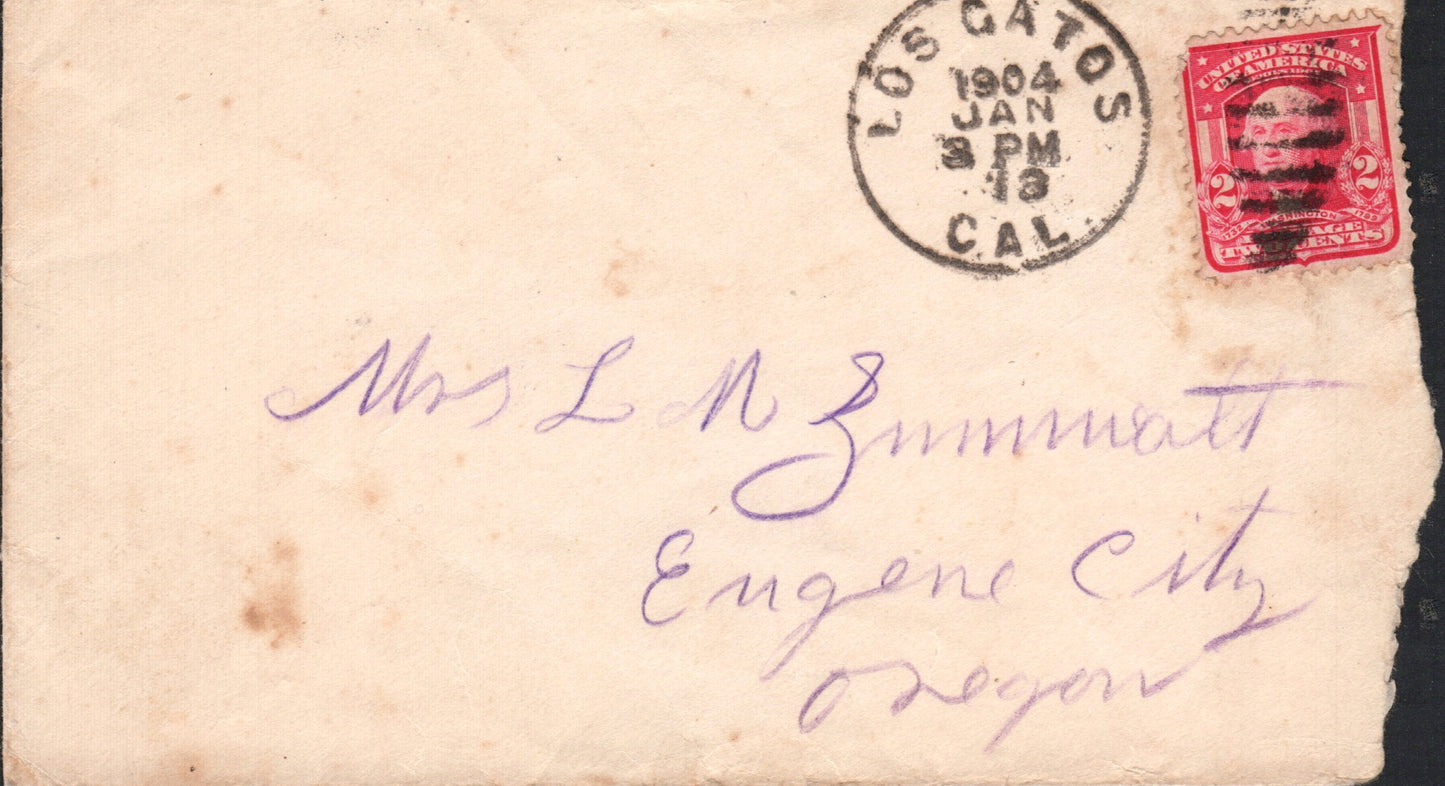 LOS GATOS
1904
JAN
3 PM
13
CAL.
UNITED STATES
OF AMERICA
2 2
1732 WASHINGTON 1799
POSTAGE
TWO CENTS
Mrs L M Zummwalt
Eugene City
Oregon